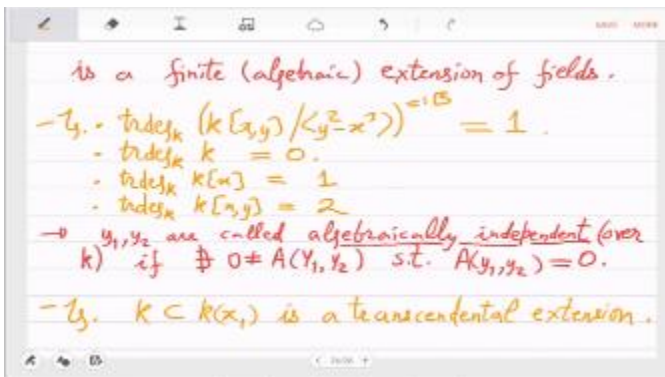 SAVE MORE
is a finite (algebraic) extension of fields.
- Eg. · trdeg_k (k[x,y]/<y²-x³>)^{=:B} = 1.
· trdeg_k k = 0.
· trdeg_k k[x] = 1
· trdeg_k k[x,y] = 2
→ y₁,y₂ are called algebraically independent (over
k) if ∄ 0≠A(Y₁,Y₂) s.t. A(y₁,y₂)=0.
- Eg. k ⊂ k(x₁) is a transcendental extension.